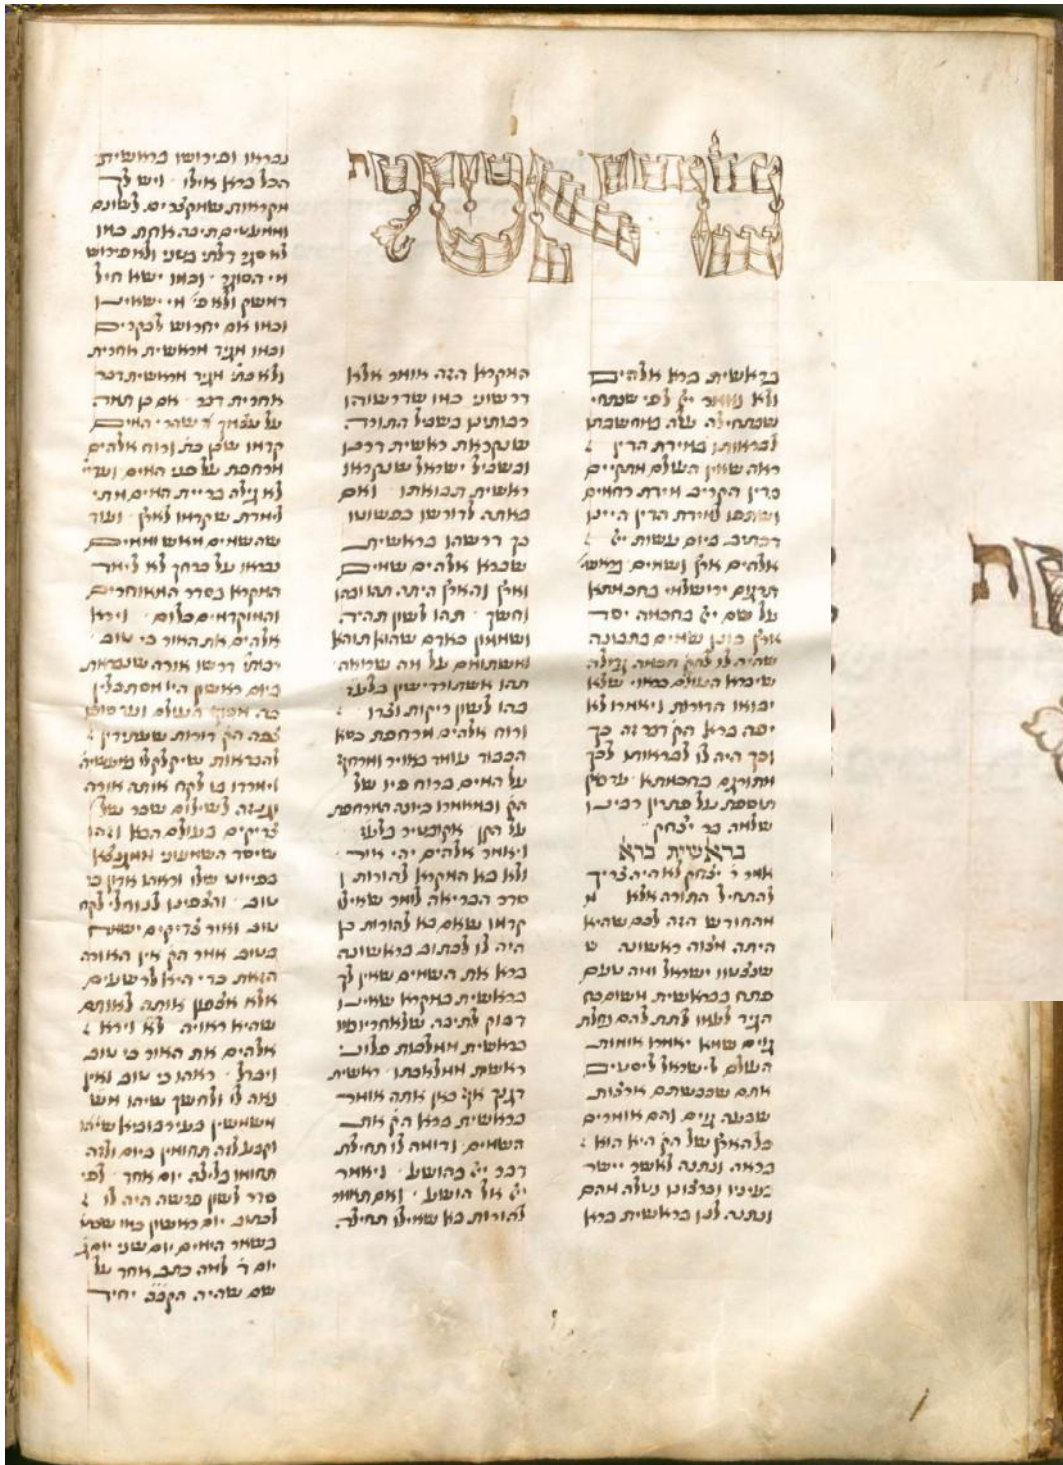 בראשית ברא אלהים
ולא נאמר ייי לפי שבתחי
שבתחילה עלה במחשבתו
לבראותו במידת הדין
ראה שאין העולם מתקיים
בדין הקדים מידת רחמים
ושתפו למידת הדין היינו
דכתיב ביום עשות ייי
אלהים ארץ ושמים
תרגום ירושלמי בחכמתא
על שם ייי בחכמה יסד
ארץ כונן שמים בתבונה
שהיה לו להק חכמה גדולה
שיברא העולם כראוי שלא
יבואו הדורות ויאמרו לא
יפה ברא הק דבר זה כך
וכך היה לו לבראותו לכך
מתורגם בחכמתא עד כאן
תוספת על פתרון רבינו
שלמה בר יצחק
בראשית ברא
אמר ר יצחק לא היה צריך
להתחיל התורה אלא מ
מהחודש הזה לכם שהיא
היתה מצוה ראשונה ש
שנצטוו ישראל ומה טעם
פתח בבראשית משום כח
הגיד לעמו לתת להם נחלת
גוים שמא יאמרו אומות
העולם לישראל ליסטים
אתם שכבשתם ארצות
שבעה גוים והם אומרים
כל הארץ של הק היא הוא
בראה ונתנה לאשר יישר
בעיניו וברצונו נטלה מהם
ונתנה לנו בראשית ברא
המקרא הזה אומר אלא
דרשוני כמו שדרשוהו
רבותינו בשביל התורה
שנקראת ראשית דרכו
ובשביל ישראל שנקראו
ראשית תבואתו ואם
באתה לדורשו כפשוטו
כך דרשהו בראשית
שברא אלהים שמים
וארץ והארץ היתה תהו ובהו
וחשך תהו לשון תהיה
ושממון שאדם שהוא תוהא
ומשתומם על מה שרואה
תהו אשתורדישון בלעז
בהו לשון ריקות וצדו
ורוח אלהים מרחפת כסא
הכבוד עומד באויר ומרחף
על המים ברוח פיו של
הק ובמאמרו כיונה המרחפת
על הקן אקובטיר בלעז
ויאמר אלהים יהי אור
ולא בא המקרא להורות
סדר הבריאה לומר שאילו
קדמו שאם בא להורות כן
היה לו לכתוב בראשונה
ברא את השמים שאין לך
בראשית במקרא שאינו
דבוק לתיבה שלאחריו כמו
בראשית ממלכות פלוני
ראשית ממלכתו ראשית
דגנך אף כאן אתה אומר
בראשית ברא הק את
השמים ודומה לו תחילת
דבר ייי בהושע ויאמר
ייי אל הושע ואם תאמר
להורות בא שאילו תחילה
נבראו ופירושו בראשית
הכל ברא אילו ויש לך
מקראות שמקצרים לשונם
וממעטים תיבה אחת כמו
לא סגר דלתי בטני ולא פירש
מי הסוגר וכמו ישא חיל
דמשק ולא פי מי ישאינו
וכמו אם יחרוש בבקרים
וכמו מגיד מראשית אחרית
ולא כת מגיד מראשית דבר
אחרית דבר אם כן תמה
על עצמך שהרי המים
קדמו שכן כת ורוח אלהים
מרחפת על פני המים ועדיי
לא גילה בריית המים מתי
לימדת שקדמו לארץ ועוד
שהשמים מאש וממים
נבראו על כרחך לא לימד
המקרא בסדר המאוחרים
והמוקדמים כלום וירא
אלהים את האור כי טוב
רבתי דרשו אורה שנבראת
ביום ראשון היו מסתכלין
בה מסוף העולם ועד סופו
צפה הק דורות שעתידין
להבראות שיקלקלו מעשיה
וימרדו בו לקח אותה אורה
וגנזה לשילום שכר של
צדיקים בעולם הבא וזהו
שיסד השמעוני ממגנצא
בפייוט שלו וראהו אדון כי
טוב והצפינו לנוחלי לקח
טוב ואור צדיקים ישמח
בטוב אמר הק אין האורה
הזאת כדי היא לרשעים
אלא אצפון אותה לאותם
שהיא ראויה לא וירא
אלהים את האור כי טוב
ויבדל ראהו כי טוב ואין
נאה לו ולחשך שיהו מש
משמשין בעירבוביא שיהו
וקבע לזה תחומין ביום ולזה
תחומו בלילה יום אחד לפי
סדר לשון פרשה היה לו
לכתוב יום ראשון כמו שכת
בשאר הימים יום שני יום ג
יום ד למה כתב אחד על
שם שהיה הקבב יחיד
ת